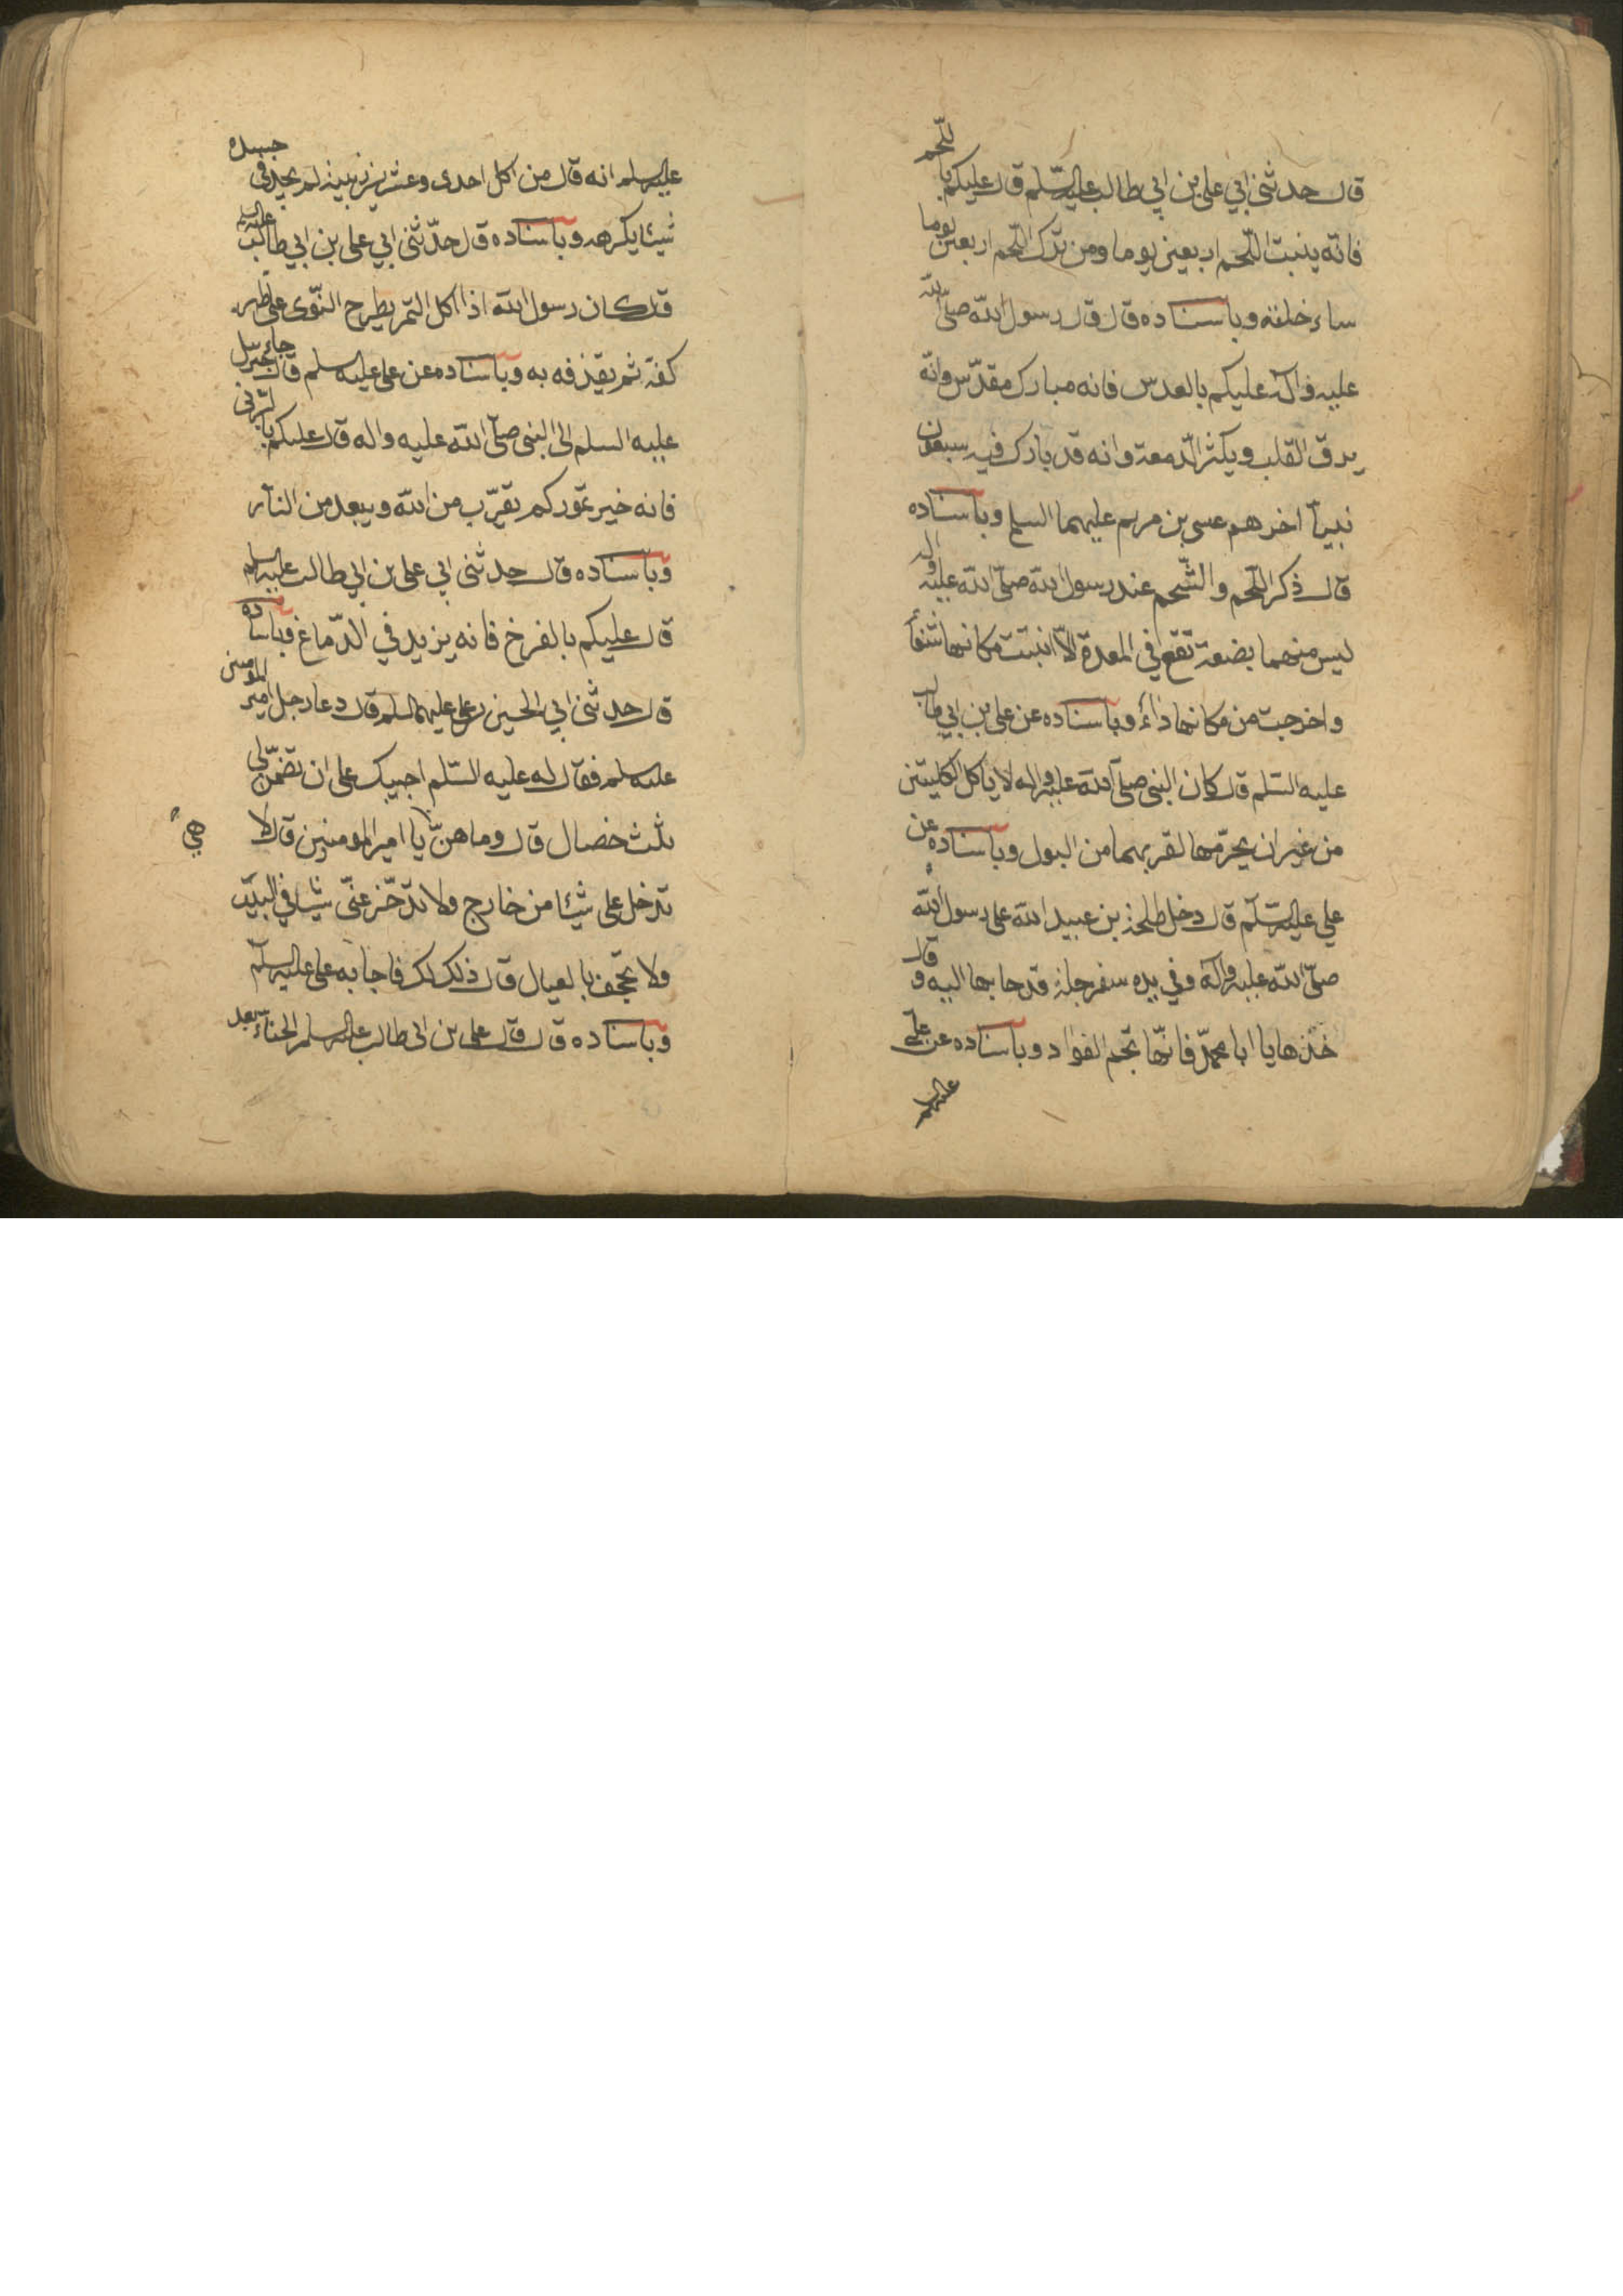 قال حدثنى ابي على بن ابي طالب عليه السّلم قال عليكم باللّحم
فانّه ينبت اللّحم اربعين يوما ومن ترك اللّحم اربعين يوما
ساء خلقه وباسناده قال قال رسول الله صلّى الله
عليه واله عليكم بالعدس فانه مبارك مقدّس وانّه
يرق القلب ويكثر الدمعة وانه قد بارك فيه سبعون
نبيّا اخرهم عيسى بن مريم عليهما السلم وباسناده
قال ذكر اللّحم والشّحم عند رسول الله صلّى الله عليه واله
ليس منهما بضعة تقع في المعدة الّا انبتت مكانها شفاء
واخرجت من مكانها داء وباسناده عن على بن ابي طالب
عليه السّلم قال كان النبى صلّى الله عليه واله لا ياكل الكليتين
من غير ان يحرّمها لقربهما من البول وباسناده عن
علي عليه السّلم قال دخل طلحة بن عبيد الله على رسول الله
صلّى الله عليه واله وفي يده سفرجلة قد جا بها اليه وقال
خذها يا ابا محمّد فانّها تجم الفواد وباسناده عن على
عليه السلم
عليه السلم انه قال من اكل احدى وعشرين زبيبة لم يجد في جسده
شيئا يكرهه وباسناده قال حدّثنى ابي على بن ابي طالب عليه السلم
قال كان رسول الله اذا اكل التمر يطرح النّوى على ظهر
كفّه ثم يقذفه به وباسناده عن على عليه السلم قال جاء جبرئيل
عليه السلم الى النبى صلّى الله عليه واله قال عليكم بالبرني
فانه خير تموركم يقرّب من الله ويبعد من النار
وباسناده قال حدثنى ابي على بن ابي طالب عليه السلم
قال عليكم بالفرخ فانه يزيد في الدّماغ وباسناده
قال حدثنى ابي الحسين بن على عليهما السلم قال دعا رجل امير المومنين
عليه السلم فقال له عليه السّلم اجيبك على ان تضمن لى
ثلث خصال قال وما هنّ يا امير المومنين قال لا
هي
تدخل على شيئا من خارج ولا تدّخر عنّى شيئا في البيت
ولا تجحف بالعيال قال ذلك لك فاجابه على عليه السلم
وباسناده قال قال على بن ابى طالب عليه السلم الحنّاء بعد